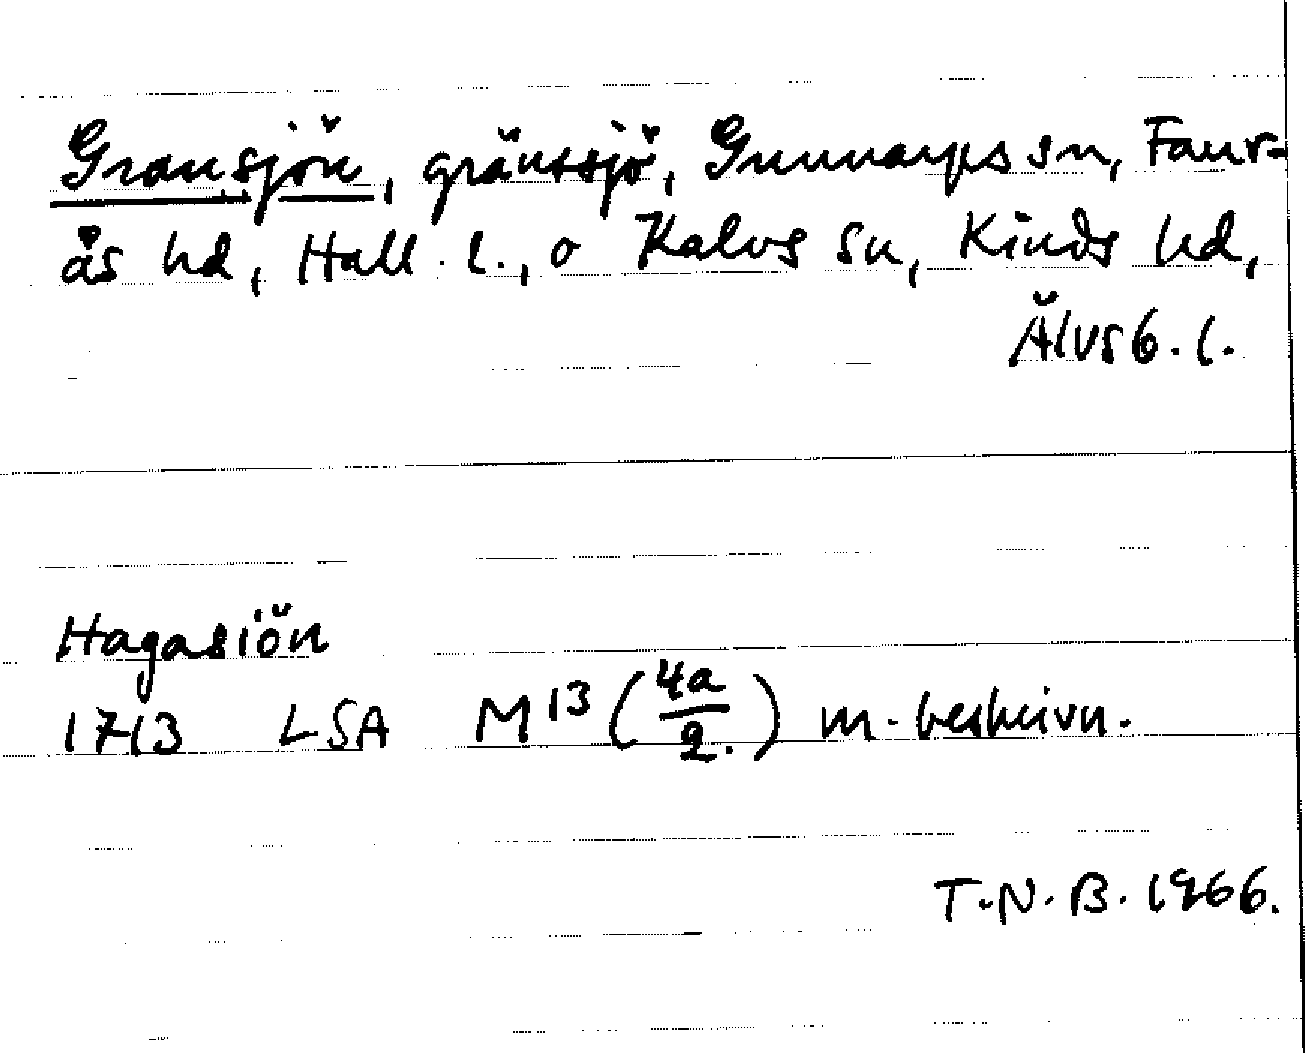 Gransjön, gränssjö, Gunnarps sn, Faur-
ås hd, Hall. l., o Kalvs sn, Kinds hd,
Älvsb. l.
Hagasiön
1713 LSA M 13 (4a/2.) m. beskrivn.
T.N.B. 1966.